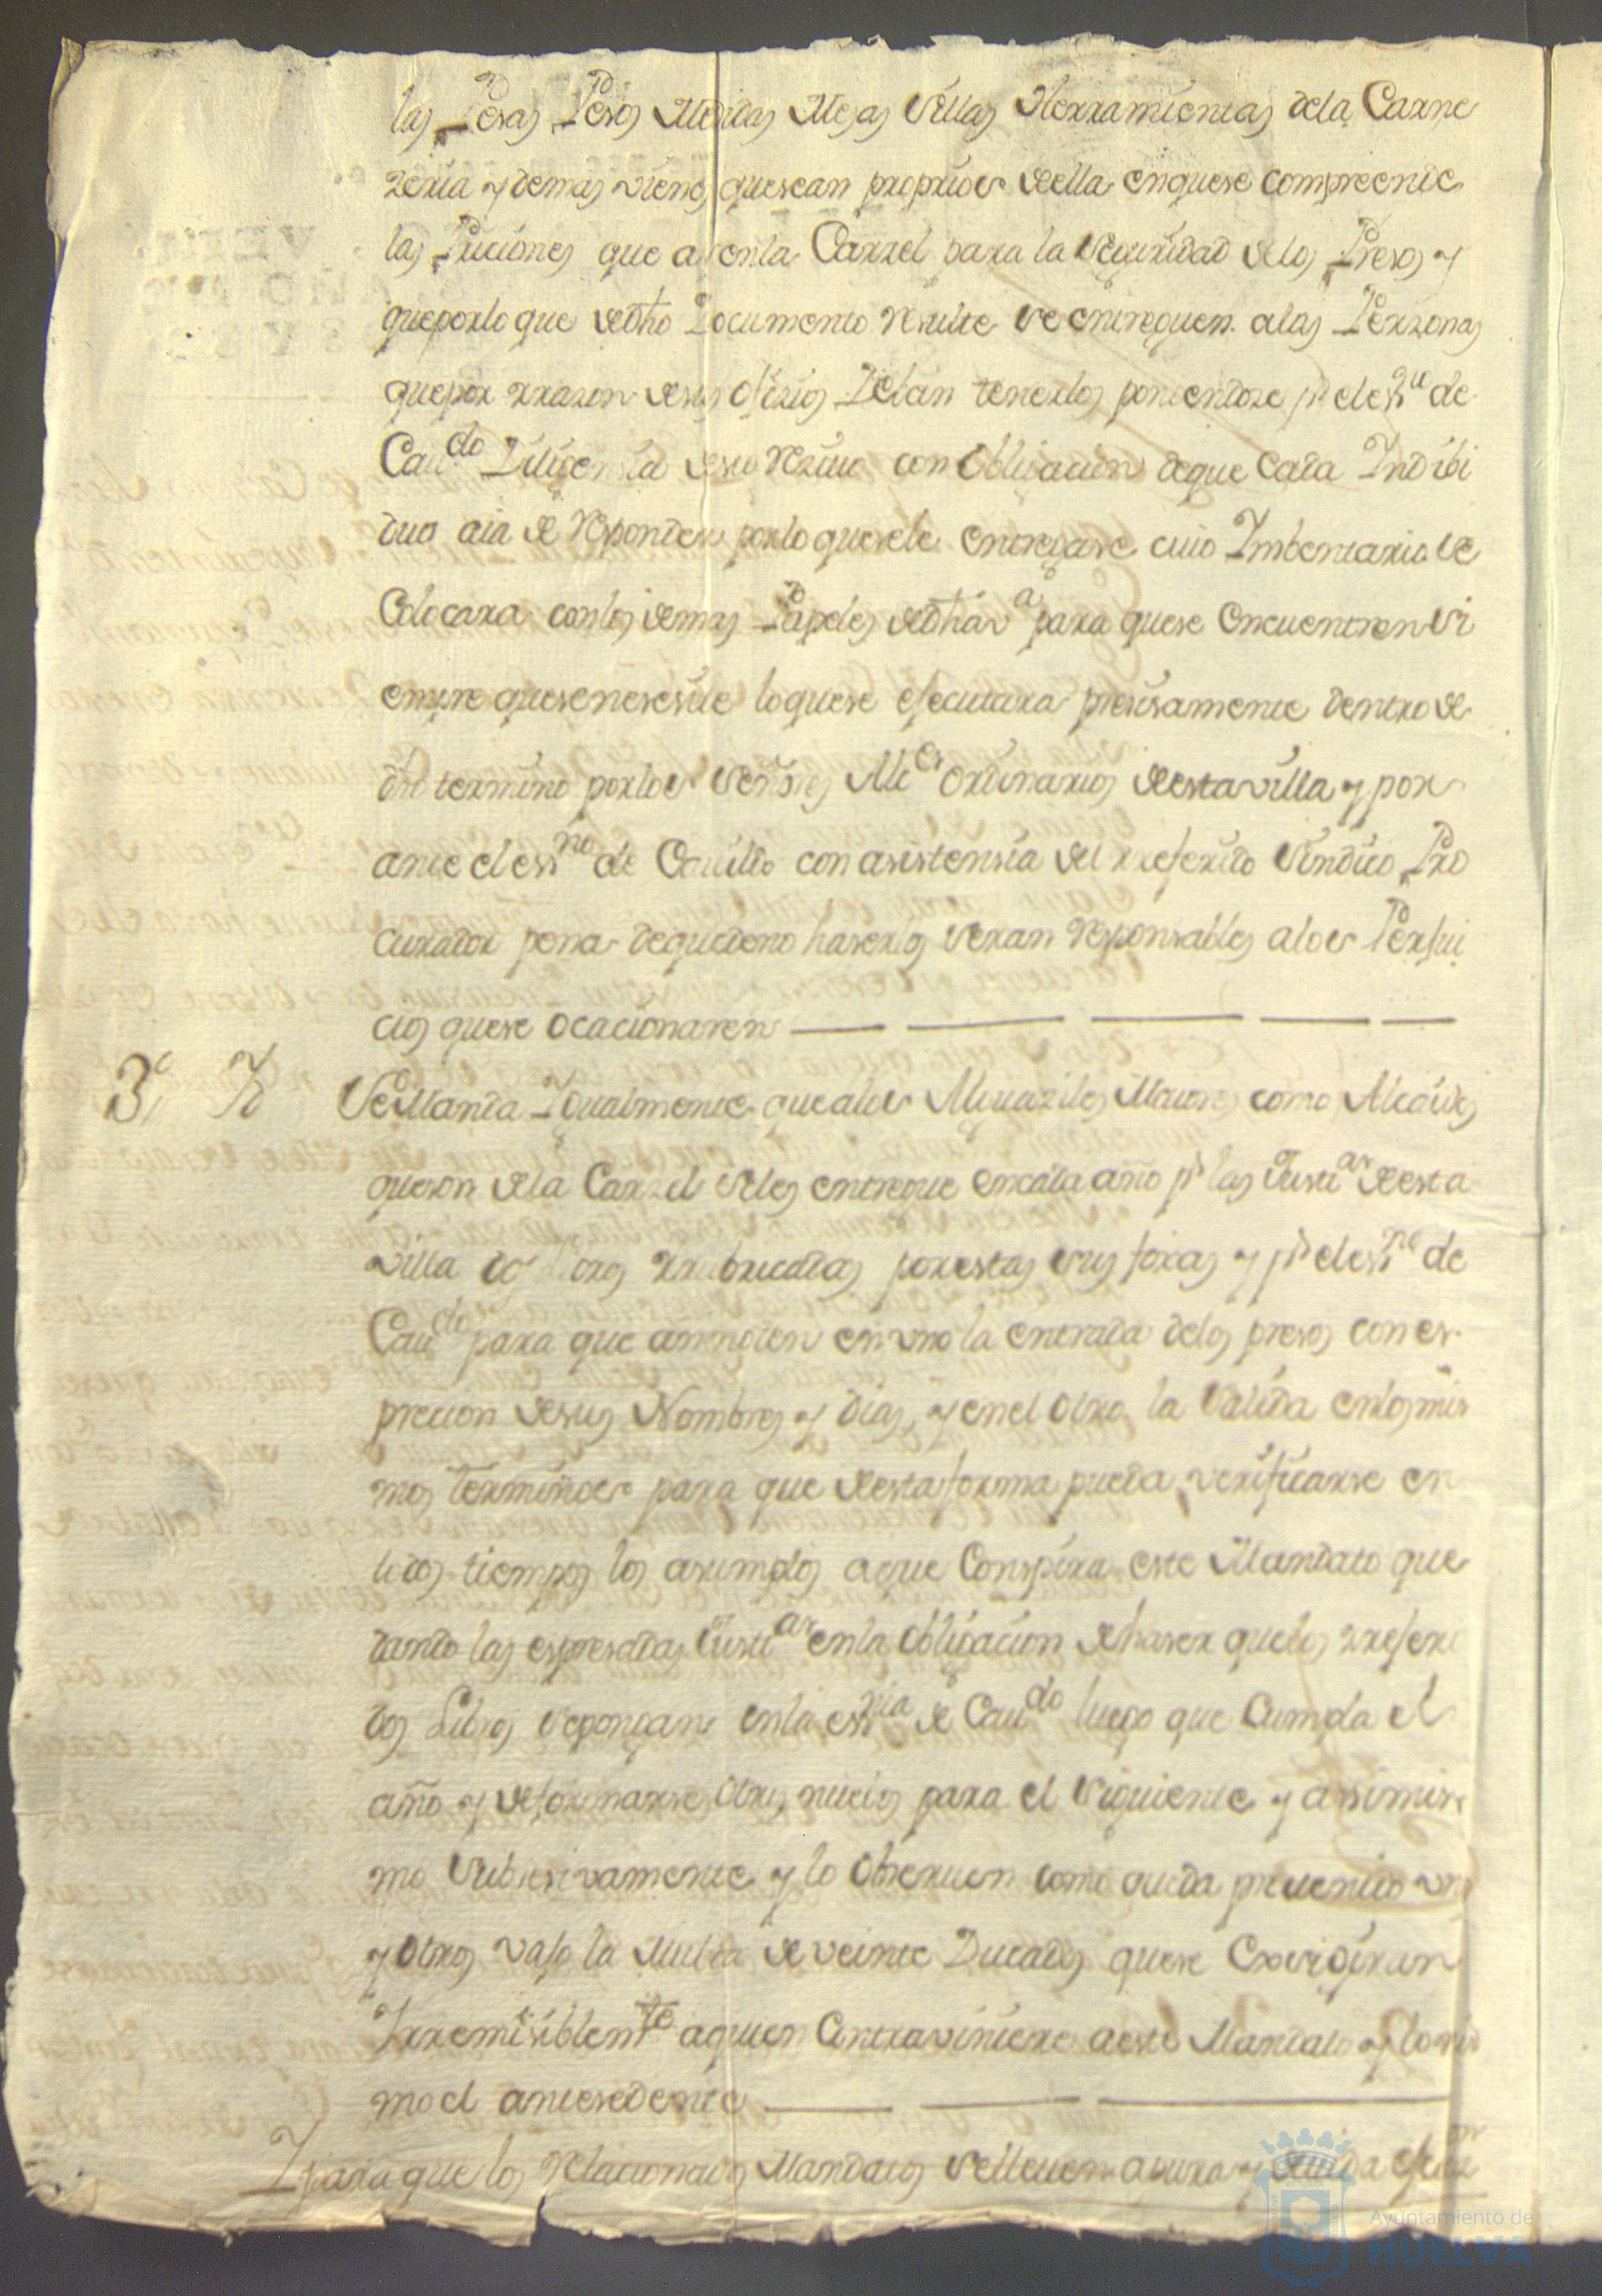 las Pesas Pesos Medidas Mesas Sillas Herramientas dela Carne
zeria y demas vienes quesean proprios deella enquese compreende
las Priciones que ai enla Carzel para la seguridad delos Presos y
queporlo que dedho Documento resulte se entreguen alas Perzonas
quepor rrazon desus ofizios Deban tenerlos poniendoze pr eless.no de
Cau.do Dilijensia desu reziuo con obligacion deque Cada Indibi
duo aia de responder porlo quesele entregase cuio Imbentario se
Colocara conlos demas Papeles dedha v.a para quese encuentren si
empre quesenesesite loquese ejecutara presisamente dentro de
dho termino porlos señores Alc.es ordinarios deesta villa y por
ante el ess.no de Cauildo con asistensia del rreferido sindico Pro
curador pena dequedeno haserlo seran responsables alos Perjui
cios quese ocacionaren
3.o Yd Se Manda Igualmente quealos Alguaziles Maiores como Alcaides
queson dela Carzel seles entregue encada año pr las Justi.as deesta
villa dos Libros rrubricados porestas sus foxas y pr eless.no de
Cau.do para que annoten en vno la entrada delos presos con es
precion desus Nombres y dias, y enel otro la salida enlosmis
mos terminos para que deestaforma pueda verificarse en
tiempos los asumptos aque Conspira este Mandato que
dando las espresadas Justi.as enla obligacion de haser quelos rreferi
dos Libros sepongan enla ess.nia de Cau.do luego que Cumpla el
año y deformarse otros nuebos para el siguiente y assimis
mo subsesivamente y lo obseruen como queda preuenido vnos
y otros vajo la Multa de veinte Ducados quese Exsigiran
Irremisiblem.te aquien Contraviniere aeste Mandato y lo mis
mo el antesedente
I para que los relacionados Mandatos selleuen apura y deuida ejecu.on
Ayuntamiento de
HUELVA